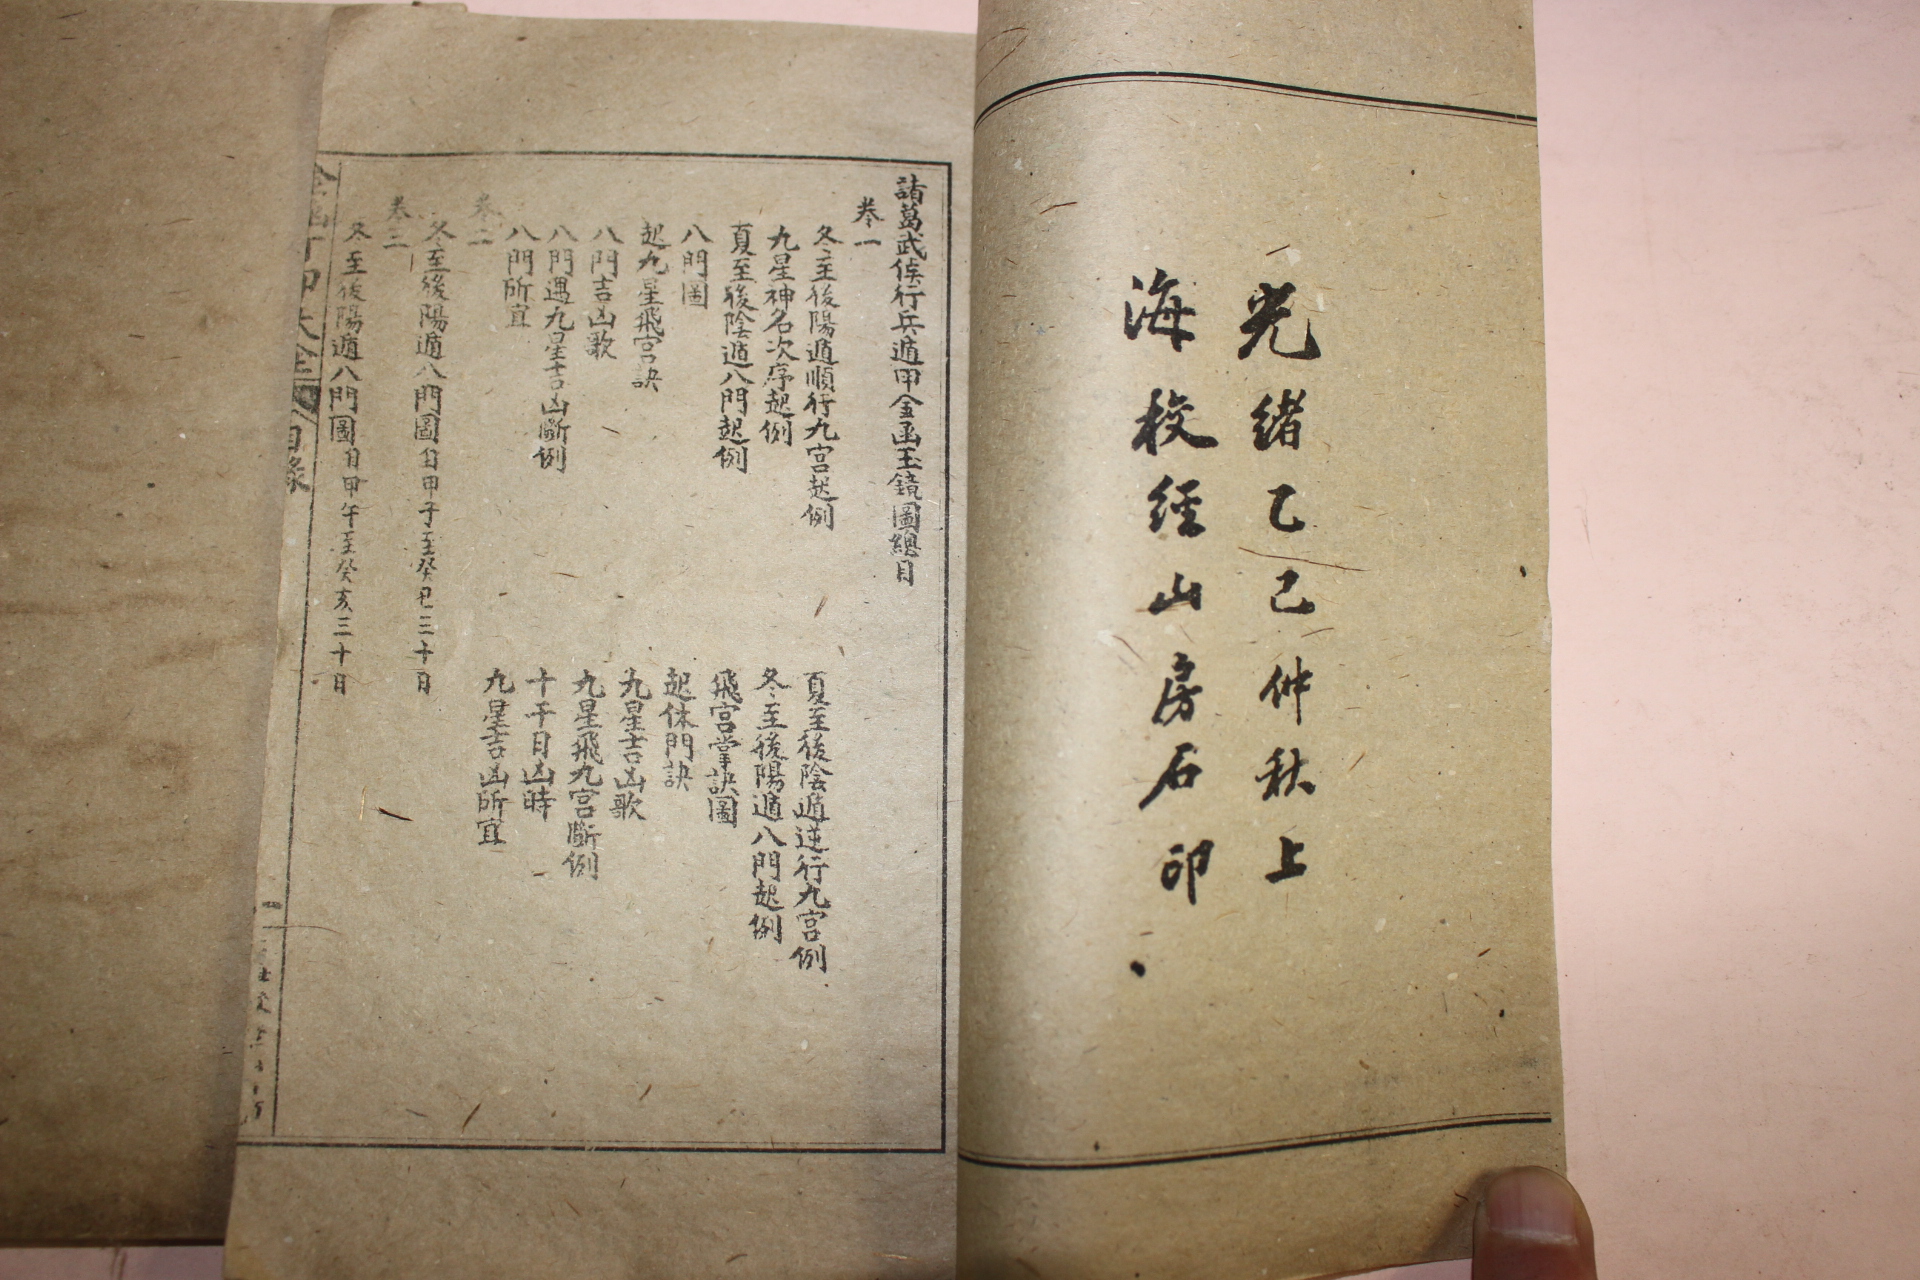 光緒乙己仲秋上
海校經山房石印
諸葛武侯行兵遁甲金函玉鏡圖總目
卷一
冬至後陽遁順行九宮起例
夏至後陰遁逆行九宮例
九星神名次序起例
冬至後陽遁八門起例
夏至後陰遁八門起例
飛宮掌訣圖
八門圖
起休門訣
起九星飛宮訣
九星吉凶歌
八門吉凶歌
九星飛九宮斷例
八門遇九星吉凶斷例
十干日凶時
八門所宜
九星吉凶所宜
卷二
冬至後陽遁八門圖自甲子至癸巳三十日
卷三
冬至後陽遁八門圖自甲午至癸亥三十日
目錄